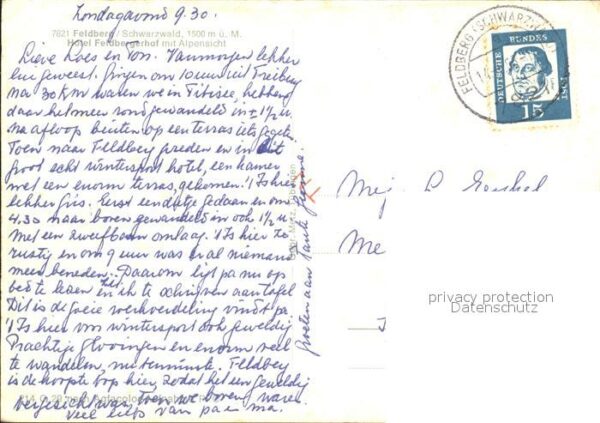 Zondagavond 9.30.
7821 Feldberg / Schwarzwald, 1500 m ü. M.
Hotel Feldbergerhof mit Alpensicht
Lieve Loes en Ton. Vanmorgen lekker
geweest. Gingen om 10 uur uit Freiburg
Na 30 km waren we in Titisee, hebben
daar het meer rond gewandeld in ± 1½ u.
na afloop buiten op een terras iets
Toen naar Feldberg gereden en in dit
groot echt wintersport hotel, een kamer
met een enorm terras, gekomen. 't Is hier
lekker fris. Eerst een dutje gedaan en om
4.30 naar boven gewandeld in ook 1½ u.
Met een zweefbaan omlaag. 't Is hier te
rustig en om 9 uur was er al niemand
meer beneden. Daarom ligt pa nu op
bed te lezen en ik te schrijven aan tafel
Dit is de foeie
't Is hier voor wintersport ook geweldig
Prachtige glooingen en enorm veel
te wandelen, met Feldberg
is de hoogste top hier, zodat het een geweldig
vergezicht was, toen we boven waren.
Veel liefs van pa en ma.
Groeten aan tante
FELDBERG (SCHWARZWALD)
DEUTSCHE BUNDESPOST
15
Mej. L
Me
privacy protection
Datenschutz